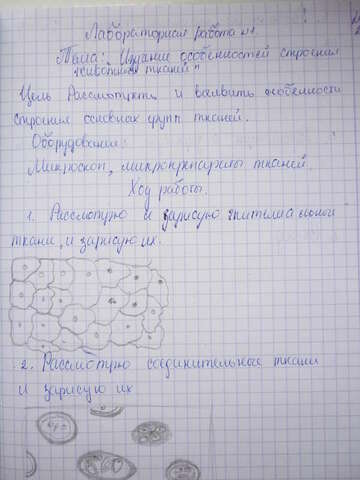 Лабораторная работа №1
Тема: "Изучение особенностей строения
животных тканей"
Цель Рассмотреть и выявить особенности
строения основных групп тканей.
Оборудование:
Микроскоп, микропрепараты тканей.
Ход работы.
1. Рассмотрю и зарисую
ткани, и зарисую их.
2. Рассмотрю соединительные ткани
и зарисую их